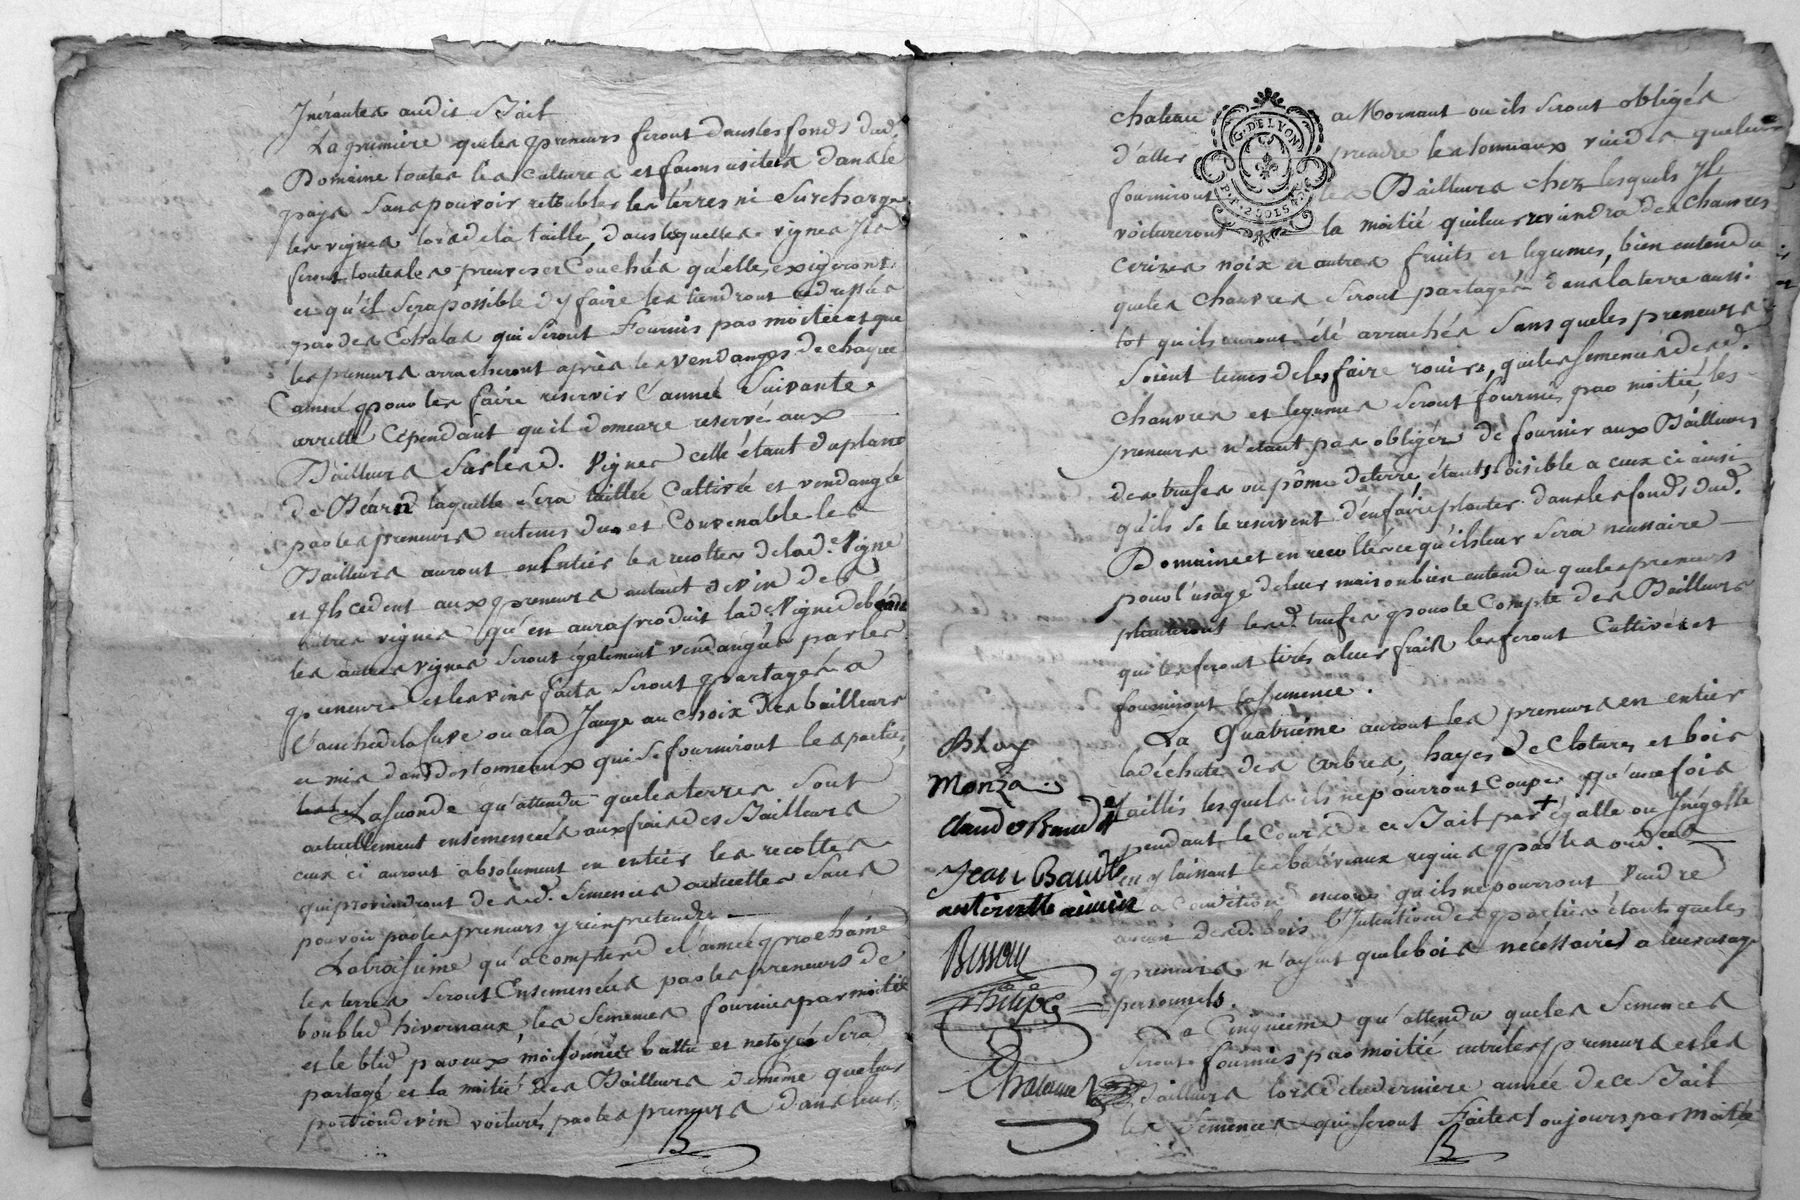 Inérantes audit Bail
La premiere que les preneurs feront dans les fonds dud.
Domaine toutes les cultures et façons usitées dans le
pays sans pouvoir retoubler les terres ni surcharger
les vignes lors de la taille, dans lesquelles vignes Ils
feront toutes les preuves et Couchés qu'elles exigeront
et qu'il sera possible d'y faire les tiendront redressées
par des Echalas qui seront Fournis par moitié et que
les preneurs arracheront après les vendanges de chaque
Cannée pour les faire reservir L'année suivante.
arretté Cependant qu'il demeure reservé aux
Bailleurs sur lesd. Vignes celle étant du plant
de Béarn laquelle sera taillée Cultivée et vendangée
par les preneurs en tems du et Convenable les
Bailleurs auront en Entier les recoltes de lad.e Vigne
et Ils cedent aux preneurs autant de vin des
autres vignes qu'en aura produit lad.e Vigne de béarn
les autres vignes seront également vendangées par les
preneurs et les vins faits seront partagés a
L'anche de la Cuve ou a la Jauge au choix des bailleurs
et mis dans des tonneaux qui se fourniront les parties
La seconde qu'attendu que les terres sont
actuellement ensemencées aux frais des Bailleurs
ceux ci auront absolument en entier les recoltes
qui proviendront desd. semences actuelles sans
pouvoir par les preneurs y rien pretendre
La troisieme qu'a compter de l'année prochaine
les terres seront Ensemencées par les preneurs de
bons bled hivernaux, les semences fournies par moitié
et le bled par eux moissonnée battu et netoyé sera
partagé et la moitié des Bailleurs de même que leur
portion de vin voiturés par les preneurs dans leur
B
chateau a Mornant ou ils seront obligés
d'aller prendre les tonneaux vuides que leur
fourniront les Bailleurs chez lesquels Ils
voitureront la moitié qui leur reviendra des chanvres
cerizes noix et autres fruits et legumes, bien entendu
que les chanvres seront partagés dans la terre aussi
tot qu'ils auront été arrachés sans que les preneurs
soient tenus de les faire rouir, que les semences desd.
chanvres et legumes seront fournies par moitié, les
preneurs n'étant pas obligés de fournir aux Bailleurs
des trufes ou pôme de terre, étant loisible a ceux ci ainsi
qu'ils se le reservent d'en faire planter dans les fonds dud.
Domaine et en recolter ce qu'il leur sera necessaire
pour l'usage de leur maison bien entendu que les preneurs
planteront lesd. trufes pour le Compte des Bailleurs
qui les feront tirer a leur frais les feront Cultiver et
fourniront la semence.
La Quatrième auront les preneurs en entier
la déchute des arbres, hayes de Clotures et bois
taillis lesquels ils ne pourront Couper qu'une fois
pendant le Cours de ce Bail par + égalle ou Inégalle
en y laissant les baliveaux requis par les ord.ces
a condition encore qu'ils ne pourront vendre
aucun desd. bois l'Intention des parties étant que les
preneurs n'ayent que le bois nécéssaire a leur usage
personnels.
La Cinquieme qu'attendu que les semences
seront fournies par moitié entre les preneurs et les
Bailleurs lors de la derniere année de ce Bail
les semences qui seront Faites toujours par moitié
B
G. DE LYON
Monza
Claude Baudet
Jean Baudet
Besson